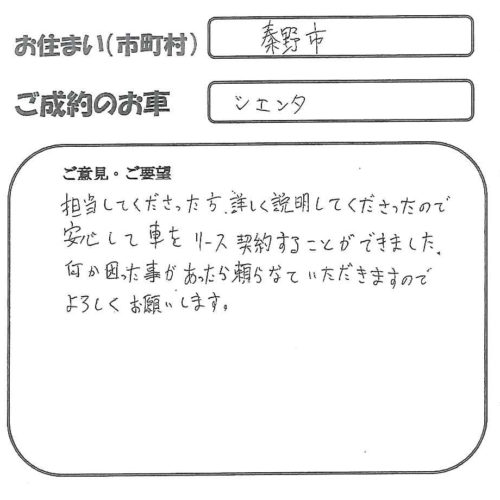 お住まい(市町村) 秦野市
ご成約のお車 シエンタ
ご意見・ご要望
担当してくださった方、詳しく説明してくださったので
安心して車をリース契約することができました。
何か困った事があったら頼らなていただきますので
よろしくお願いします。